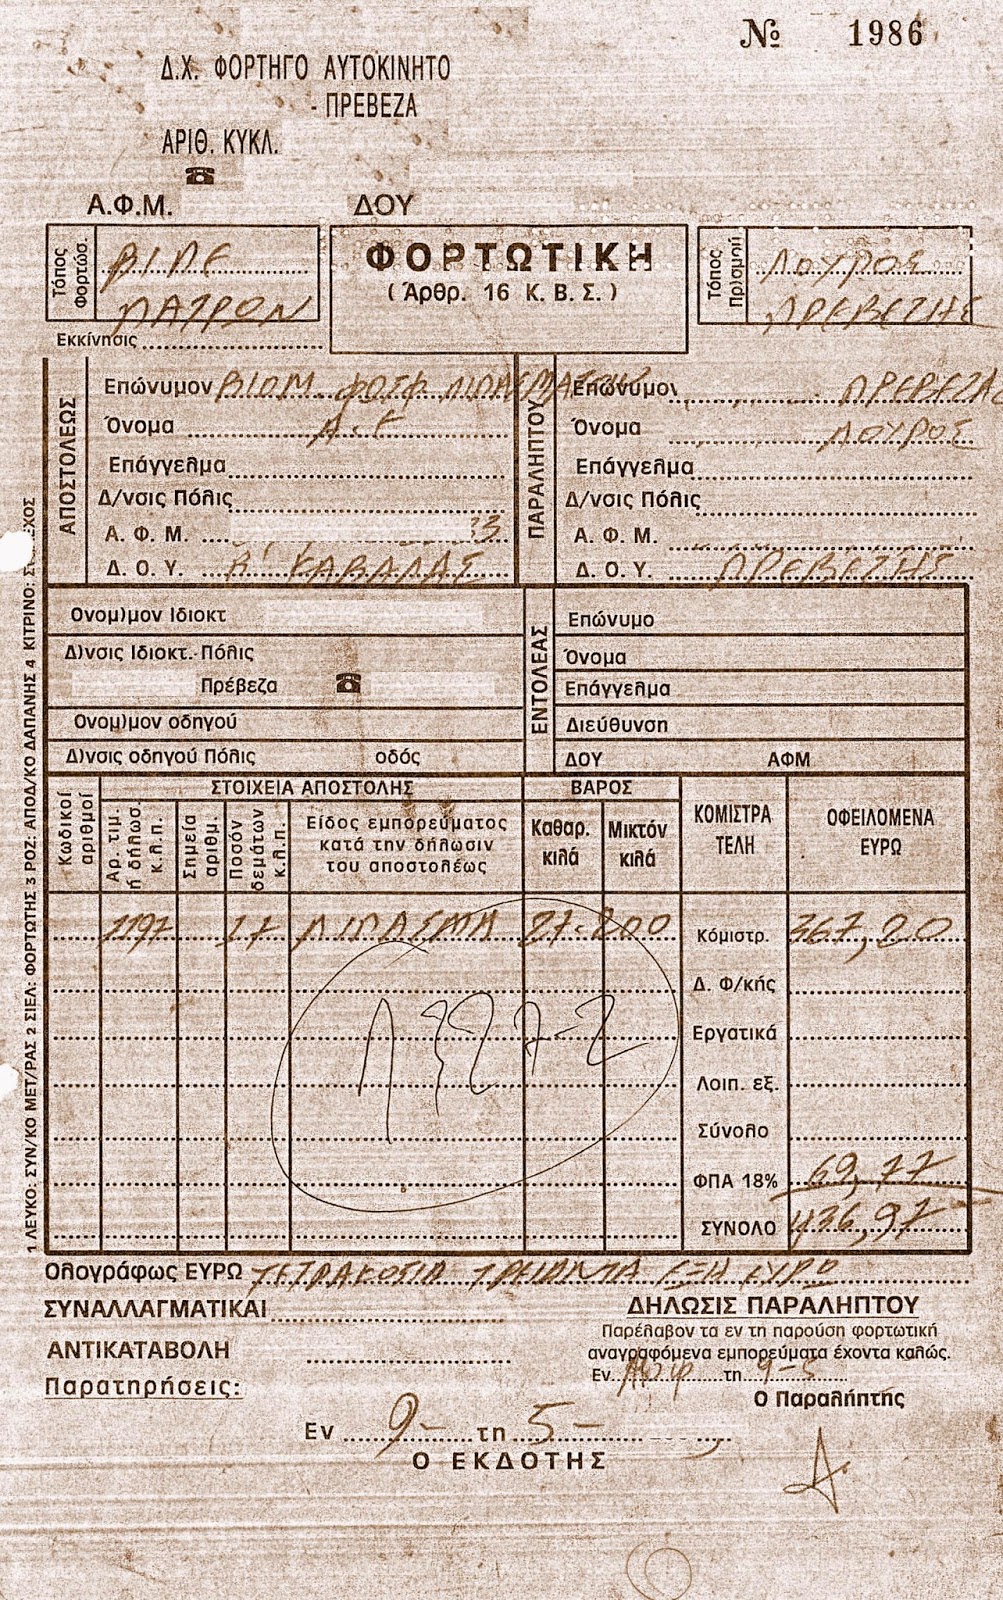 № 1986
Δ.Χ. ΦΟΡΤΗΓΟ ΑΥΤΟΚΙΝΗΤΟ
- ΠΡΕΒΕΖΑ
ΑΡΙΘ. ΚΥΚΛ.
☎
Α.Φ.Μ. ΔΟΥ
Τόπος Φορτώσ. ΒΙΠΕ
ΠΑΤΡΩΝ
Εκκίνησις
ΦΟΡΤΩΤΙΚΗ
(Άρθρ. 16 Κ.Β.Σ.)
Τόπος Πρ)σμού ΛΟΥΡΟΣ
ΠΡΕΒΕΖΗΣ
ΑΠΟΣΤΟΛΕΩΣ
Επώνυμον ΒΙΟΜ. ΦΩΣΦ ΛΙΠΑΣΜΑΤΩΝ
Όνομα Α.Ε
Επάγγελμα
Δ/νσις Πόλις
Α. Φ. Μ. 33
Δ. Ο. Υ. Β' ΚΑΒΑΛΑΣ
ΠΑΡΑΛΗΠΤΟΥ
Επώνυμον ΠΡΕΒΕΖΑΣ
Όνομα ΛΟΥΡΟΣ
Επάγγελμα
Δ/νσις Πόλις
Α. Φ. Μ.
Δ. Ο. Υ. ΠΡΕΒΕΖΗΣ
Ονομ)μον Ιδιοκτ
Δ)νσις Ιδιοκτ.-Πόλις
Πρέβεζα ☎
Ονομ)μον οδηγού
Δ)νσις οδηγού Πόλις οδός
ΕΝΤΟΛΕΑΣ
Επώνυμο
Όνομα
Επάγγελμα
Διεύθυνση
ΔΟΥ ΑΦΜ
Κωδικοί αριθμοί
ΣΤΟΙΧΕΙΑ ΑΠΟΣΤΟΛΗΣ
Αρ. τιμ. ή δήλωσ. κ.λ.π.
Σημεία αριθμ.
Ποσόν δεμάτων κ.λ.π.
Είδος εμπορεύματος
κατά την δήλωσιν
του αποστολέως
ΒΑΡΟΣ
Καθαρ. κιλά
Μικτόν κιλά
ΚΟΜΙΣΤΡΑ
ΤΕΛΗ
ΟΦΕΙΛΟΜΕΝΑ
ΕΥΡΩ
1197 17 ΛΙΠΑΣΜΑ 27.200 Κόμιστρ. 367,20
Δ. Φ/κής
Εργατικά
Λοιπ. εξ.
Σύνολο
ΦΠΑ 18% 69,77
ΣΥΝΟΛΟ 436,97
1 ΛΕΥΚΟ: ΣΥΝ/ΚΟ ΜΕΤ/ΡΑΣ 2 ΣΙΕΛ: ΦΟΡΤΩΤΗΣ 3 ΡΟΖ: ΑΠΟΔ/ΚΟ ΔΑΠΑΝΗΣ 4 ΚΙΤΡΙΝΟ:
Ολογράφως ΕΥΡΩ ΤΕΤΡΑΚΟΣΙΑ ΤΡΙΑΝΤΑ ΕΞΗ ΕΥΡΩ
ΣΥΝΑΛΛΑΓΜΑΤΙΚΑΙ
ΑΝΤΙΚΑΤΑΒΟΛΗ
Παρατηρήσεις:
ΔΗΛΩΣΙΣ ΠΑΡΑΛΗΠΤΟΥ
Παρέλαβον τα εν τη παρούση φορτωτική
αναγραφόμενα εμπορεύματα έχοντα καλώς.
Εν τη 9-5
Ο Παραλήπτης
Εν 9- τη 5-
Ο ΕΚΔΟΤΗΣ